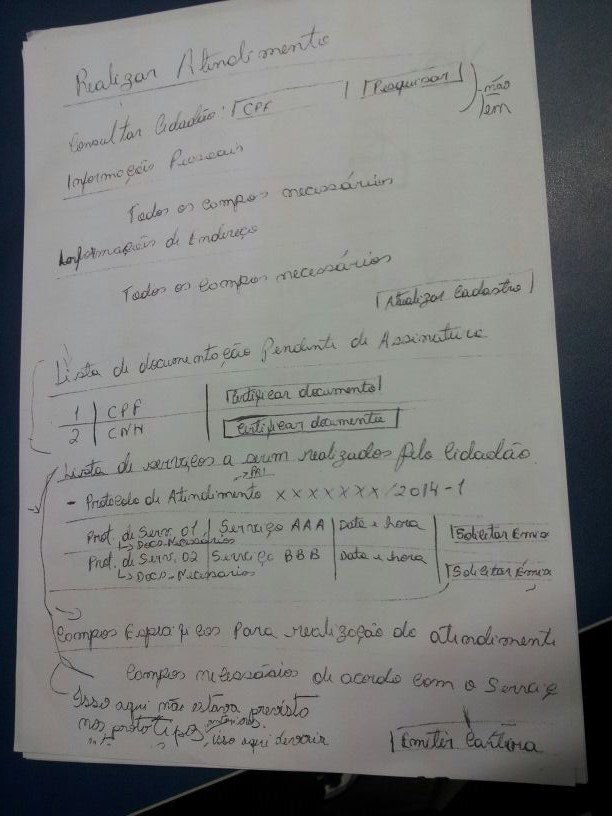 Realizar Atendimento
Consultar Cidadão: CPF Pesquisar não
em
Informação Pessoais
Todos os campos necessários
Informações de Endereço
Todos os campos necessários
Atualizar Cadastro
Lista de documentação Pendente de Assinatura
1 CPF Certificar documento
2 CNH Certificar documento
Lista de serviços a serem realizados pelo Cidadão
- Protocolo de Atendimento xxxxxxx/2014-1
Prot. de Serv. 01 Serviço AAA Data e hora Solicitar Envio
↳ Docs-Necessários
Prot. de Serv. 02 Serviço BBB Data e hora Solicitar Envio
↳ Docs-Necessários
Campos Específicos para realização do atendimento
Campos necessários de acordo com o Serviço
Isso aqui não estava previsto
nos prototipos anteriores, isso aqui deveria
Emitir Carteira